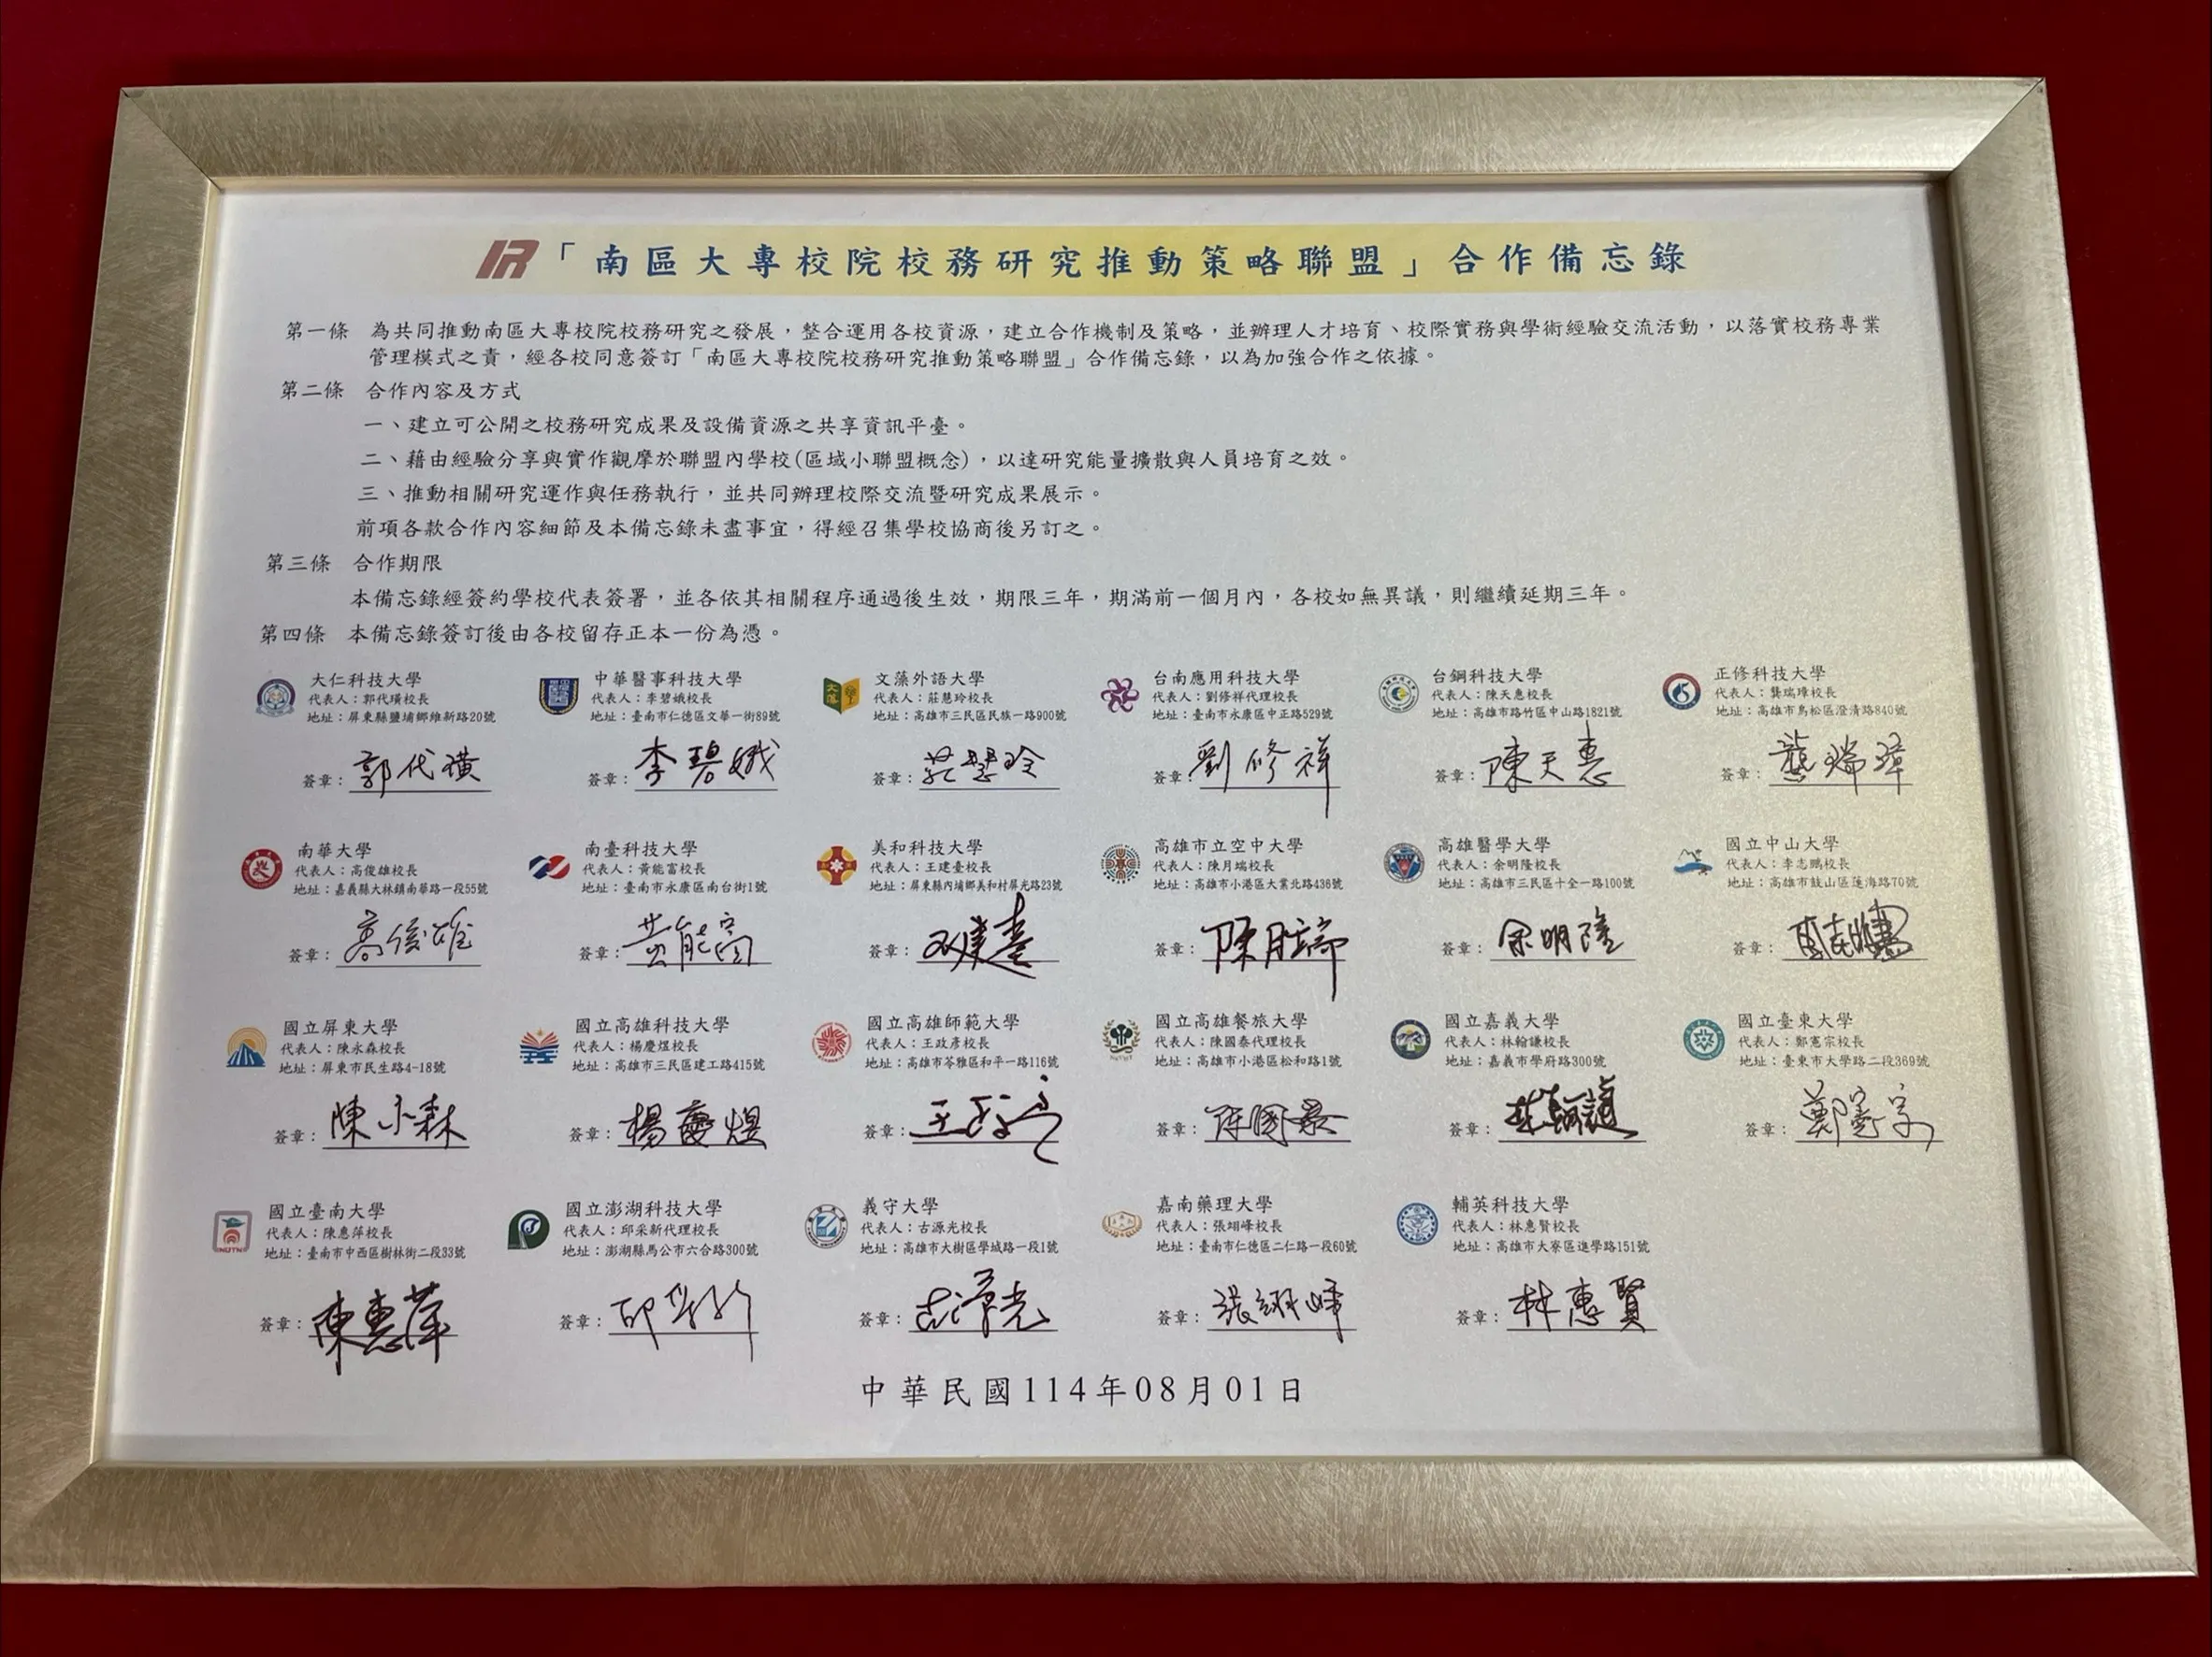 IR「南區大專校院校務研究推動策略聯盟」合作備忘錄
第一條 為共同推動南區大專校院校務研究之發展,整合運用各校資源,建立合作機制及策略,並辦理人才培育、校際實務與學術經驗交流活動,以落實校務專業
管理模式之責,經各校同意簽訂「南區大專校院校務研究推動策略聯盟」合作備忘錄,以為加強合作之依據。
第二條 合作內容及方式
一、建立可公開之校務研究成果及設備資源之共享資訊平臺。
二、藉由經驗分享與實作觀摩於聯盟內學校(區域小聯盟概念),以達研究能量擴散與人員培育之效。
三、推動相關研究運作與任務執行,並共同辦理校際交流暨研究成果展示。
前項各款合作內容細節及本備忘錄未盡事宜,得經召集學校協商後另訂之。
第三條 合作期限
本備忘錄經簽約學校代表簽署,並各依其相關程序通過後生效,期限三年,期滿前一個月內,各校如無異議,則繼續延期三年。
第四條 本備忘錄簽訂後由各校留存正本一份為憑。
大仁科技大學
代表人:郭代璜校長
地址:屏東縣鹽埔鄉維新路20號
簽章:郭代璜
中華醫事科技大學
代表人:李碧娥校長
地址:臺南市仁德區文華一街89號
簽章:李碧娥
文藻
文藻外語大學
代表人:莊慧玲校長
地址:高雄市三民區民族一路900號
簽章:莊慧玲
台南應用科技大學
代表人:劉修祥代理校長
地址:臺南市永康區中正路529號
簽章:劉修祥
台鋼科技大學
代表人:陳天惠校長
地址:高雄市路竹區中山路1821號
簽章:陳天惠
正修科技大學
代表人:龔瑞璋校長
地址:高雄市鳥松區澄清路840號
簽章:龔瑞璋
南華大學
代表人:高俊雄校長
地址:嘉義縣大林鎮南華路一段55號
簽章:高俊雄
南臺科技大學
代表人:黃能富校長
地址:臺南市永康區南台街1號
簽章:黃能富
美和科技大學
代表人:王建臺校長
地址:屏東縣內埔鄉美和村屏光路23號
簽章:王建臺
高雄市立空中大學
代表人:陳月端校長
地址:高雄市小港區大業北路436號
簽章:陳月端
高雄醫學大學
代表人:余明隆校長
地址:高雄市三民區十全一路100號
簽章:余明隆
國立中山大學
代表人:李志鵬校長
地址:高雄市鼓山區蓮海路70號
簽章:李志鵬
國立屏東大學
代表人:陳永森校長
地址:屏東市民生路4-18號
簽章:陳永森
國立高雄科技大學
代表人:楊慶煜校長
地址:高雄市三民區建工路415號
簽章:楊慶煜
國立高雄師範大學
代表人:王政彥校長
地址:高雄市苓雅區和平一路116號
簽章:王政彥
國立高雄餐旅大學
代表人:陳國泰代理校長
地址:高雄市小港區松和路1號
簽章:陳國泰
國立嘉義大學
代表人:林翰謙校長
地址:嘉義市學府路300號
簽章:林翰謙
國立臺東大學
代表人:鄭憲宗校長
地址:臺東市大學路二段369號
簽章:鄭憲宗
NUTN
國立臺南大學
代表人:陳惠萍校長
地址:臺南市中西區樹林街二段33號
簽章:陳惠萍
國立澎湖科技大學
代表人:邱采新代理校長
地址:澎湖縣馬公市六合路300號
簽章:邱采新
義守大學
代表人:古源光校長
地址:高雄市大樹區學城路一段1號
簽章:古源光
嘉南藥理大學
代表人:張翊峰校長
地址:臺南市仁德區二仁路一段60號
簽章:張翊峰
輔英科技大學
代表人:林惠賢校長
地址:高雄市大寮區進學路151號
簽章:林惠賢
中華民國114年08月01日